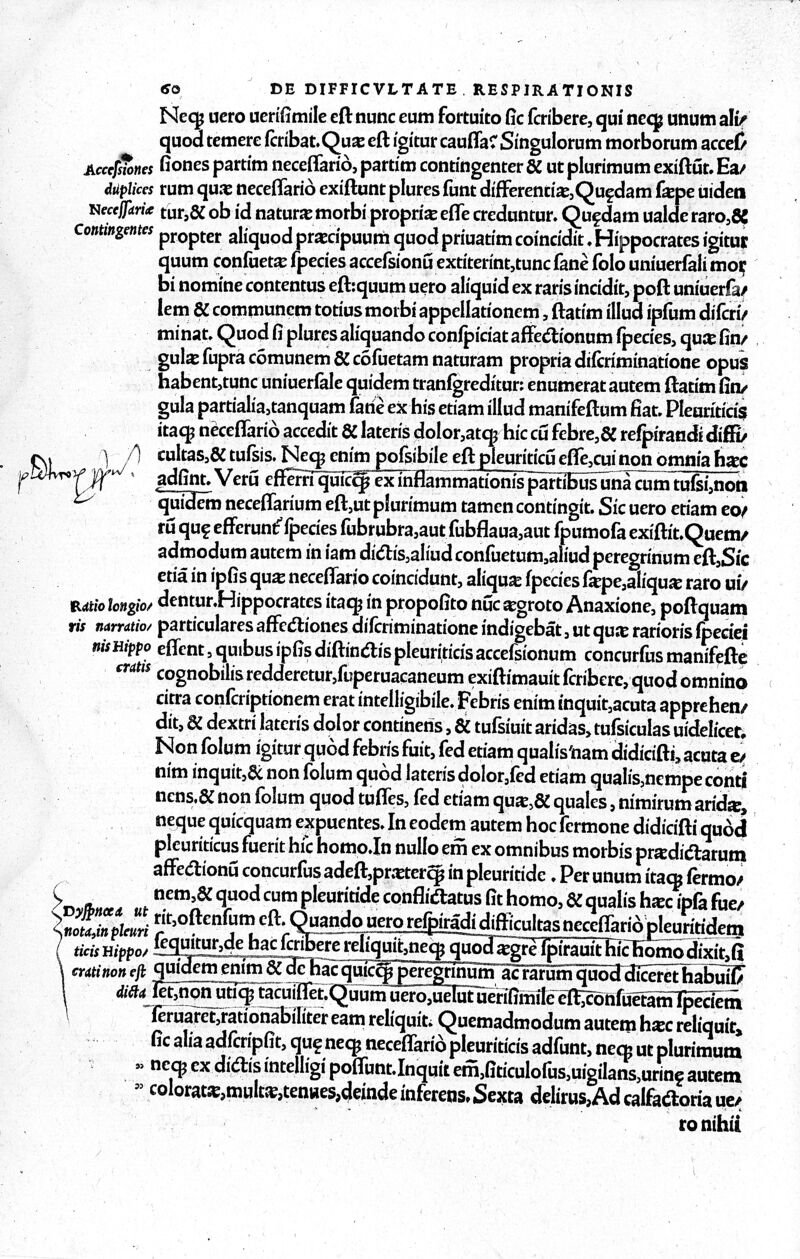 60 DE DIFFICVLTATE RESPIRATIONIS
Neq; uero uerisimile est nunc eum fortuito sic scribere, qui neq; unum ali/
quod temere scribat. Quæ est igitur caussa? Singulorum morborum acces/
Accessiones
duplices
Necessariæ
Contingentes
siones partim necessariò, partim contingenter & ut plurimum existūt. Ea/
rum quæ necessariò existunt plures sunt differentiæ, Quędam sæpe uiden
tur, & ob id naturæ morbi propriæ esse creduntur. Quędam ualde raro, &
propter aliquod præcipuum quod priuatim coincidit. Hippocrates igitur
quum consuetæ species accessionū extiterint, tunc sanè solo uniuersali mor
bi nomine contentus est: quum uero aliquid ex raris incidit, post uniuersa/
lem & communem totius morbi appellationem, statim illud ipsum discri/
minat. Quod si plures aliquando conspiciat affectionum species, quæ sin/
gulæ supra cōmunem & cōsuetam naturam propria discriminatione opus
habent, tunc uniuersale quidem transgreditur: enumerat autem statim sin/
gula partialia, tanquam sanè ex his etiam illud manifestum fiat. Pleuriticis
itaq; necessariò accedit & lateris dolor, atq; hic cū febre, & respirandi diffi/
cultas, & tussis. Neq; enim possibile est pleuriticū esse, cui non omnia hæc
adsint. Verū efferri quicq̃ ex inflammationis partibus unà cum tussi, non
quidem necessarium est, ut plurimum tamen contingit. Sic uero etiam eo/
rū quę efferunt᷑ species subrubra, aut subflaua, aut spumosa existit. Quem/
admodum autem in iam dictis, aliud consuetum, aliud peregrinum est, Sic
etiā in ipsis quæ necessario coincidunt, aliquæ species sæpe, aliquæ raro ui/
Ratio longio/
ris narratio/
nis Hippo
cratis
dentur. Hippocrates itaq; in proposito nūc ægroto Anaxione, postquam
particulares affectiones discriminatione indigebāt, ut quæ rarioris speciei
essent, quibus ipsis distinctis pleuriticis accessionum concursus manifeste
cognobilis redderetur, superuacaneum existimauit scribere, quod omnino
citra conscriptionem erat intelligibile. Febris enim inquit, acuta apprehen/
dit, & dextri lateris dolor continens, & tussiuit aridas, tussiculas uidelicet.
Non solum igitur quòd febris fuit, sed etiam qualis'nam didicisti, acuta e/
nim inquit, & non solum quòd lateris dolor, sed etiam qualis, nempe conti
nens. & non solum quod tusses, sed etiam quæ, & quales, nimirum aridæ,
neque quicquam expuentes. In eodem autem hoc sermone didicisti quòd
pleuriticus fuerit hic homo. In nullo em̄ ex omnibus morbis prædictarum
affectionū concursus adest, præterq̃ in pleuritide. Per unum itaq; sermo/
nem, & quod cum pleuritide conflictatus sit homo, & qualis hæc ipsa fue/
Dyspnœa ut
nota, in pleuri
ticis Hippo/
crati non est
dicta
rit, ostensum est. Quando uero respirādi difficultas necessariò pleuritidem
sequitur, de hac scribere reliquit, neq; quod ægrè spirauit hic homo dixit, si
quidem enim & de hac quicq̃ peregrinum ac rarum quod diceret habuis/
set, non utiq; tacuisset. Quum uero, uelut uerisimile est, consuetam speciem
seruaret, rationabiliter eam reliquit. Quemadmodum autem hæc reliquit,
sic alia adscripsit, quę neq; necessariò pleuriticis adsunt, neq; ut plurimum
„ neq; ex dictis intelligi possunt. Inquit em̄, siticulosus, uigilans, urinę autem
„ coloratæ, multæ, tenues, deinde inferens. Sexta delirus, Ad calfactoria ue/
ro nihil